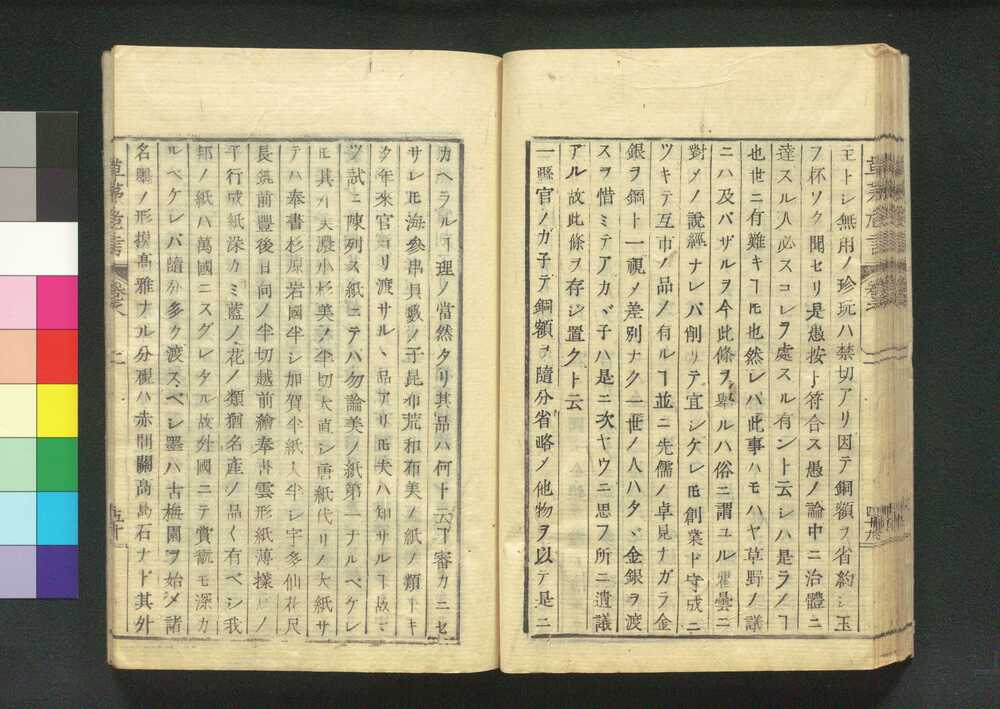 王トシ無用ノ珍玩ハ禁切アリ因テ銅額ヲ省約シ玉
フ杯ソク聞セリ是愚按ト符合ス愚ノ論中ニ治體ニ
達スル人必スコレヲ處スル有ント云シハ是ラノヿ
也世ニ有難キヿ𪜈也然レバ此事ハモハヤ草野ノ議
ニハ及バザルヲ今此條ヲ舉ルハ俗ニ謂ユル瞿曇ニ
對メノ說經ナレバ削リテ宜シケレ𪜈創業ト守成ニ
ツキテ互市ノ品ノ有ルヿ並ニ先儒ノ卓見ナガラ金
銀ヲ銅ト一視メ差別ナク一世ノ人ハタヾ金銀ヲ渡
スヲ惜ミテアカバ子ハ是ニ次ヤウニ思フ所ニ遺議
アル故此條ヲ存シ置クト云
一縣官ノガ子テ銅額ヲ隨分省略メ他物ヲ以テ是ニ
カヘラルヽヿ理ノ當然タリ其品ハ何ト云ヿ審カニセ
サレ𪜈海參串貝藪ノ子昆布荒和布美ノ紙ノ類トキ
ク年來官ヨリ渡サルヽ品アリ𪜈夫ハ知サルヿ故
ツ試ニ陳列ス紙ニテハ勿論美ノ紙第一ナルベケレ
𪜈其外天濃小杉美ノ半切大直シ唐紙代リノ大紙サ
テハ奉書杉原岩國半シ加賀半紙人半シ宇多仙花尺
長筑前豐後日向ノ半切越前繪奉書雲形紙薄樣ノ
平行成紙深カミ藍ノ花ノ類猶名產ノ品く有ベシ我
邦ノ紙ハ萬國ニスグレタル故外國ニテ賞翫モ深カ
ルベケレバ隨分多ク渡スベシ墨ハ古梅園ヲ始メ諸
名墨ノ形撲高雅ナル分硯ハ赤間關高島石ナド其外